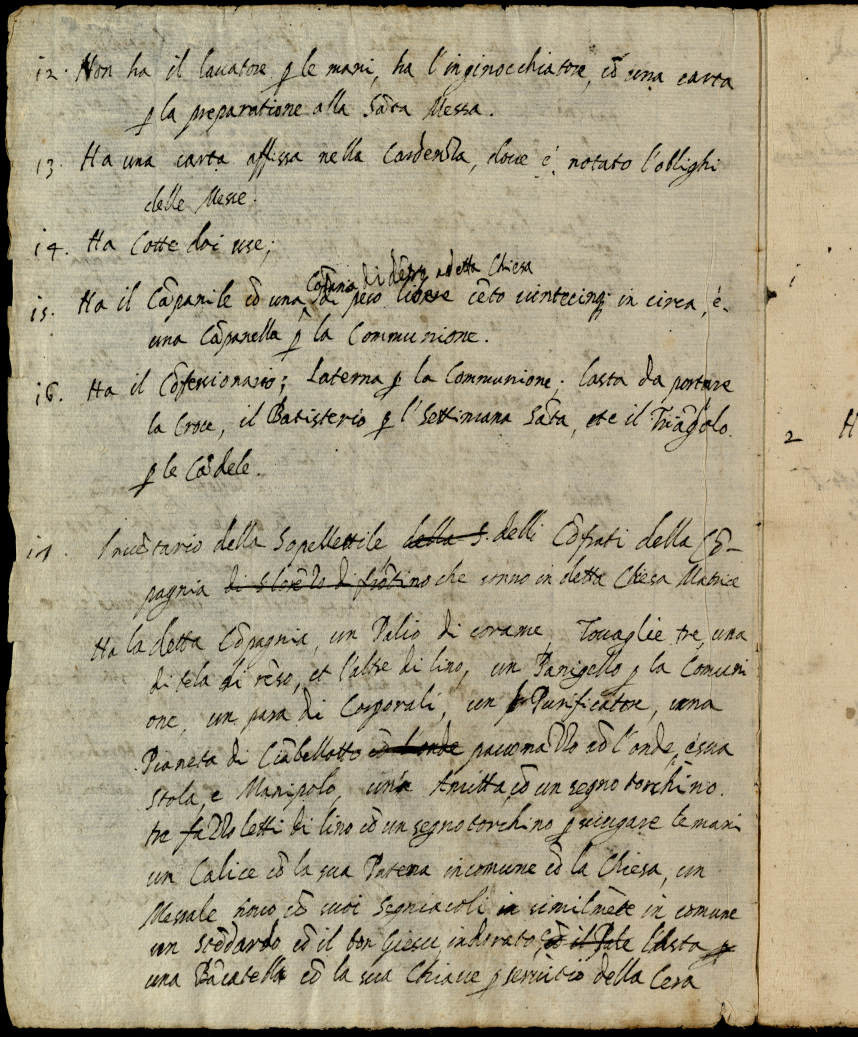 12. Non ha il lauatore p le mani, ha l'inginocchiatore, cō una carta
p la preparatione alla Sāta Messa.
13. Ha una carta affissa nella Cardēzla, doue é notato l'oblighi
delle Messe.
14. Ha Cotte doi use;
Cāpana di dētro a detta Chiesa
15. Ha il Cāpanile cō una di peso libere cēto uintecinq in circa, é
una Cāpanella p la Communione.
16. Ha il Cōfessionario; Laterna p la Communione; l'asta da portare
la Croce, il Batisterio p l'Settimana Sāta, ete il Triāgolo
p le Cādele.
17. Inuētario della Sopellettile della S. delli Cōfrati della Cō-
pagnia di S Lorēzo di frōtino che sonno in detta Chiesa Matrice
Ha la detta Cōpagnia, un Palio di corame, Touaglie tre, una
di tela di rēso, et l'altre di lino, un Panigello p la Comuni
one, un para di Corporali, un Purificatore, una
Pianeta di Ciābellotto cō l'onde pauonazzo cō l'onde, é sua
Stola, e Manipolo, un'a Amitta, cō un segno torchino.
tre fazzoletti di lino cō un segno torchino p sciugare le mani
un Calice cō la sua Patena incomune cō la Chiesa, un
Messale nouo cō suoi Segniacoli in similmēte in comune
un stēdardo cō il bon Giesu indorato, cō il Pale l'Asta p
una Bācatella cō la sua Chiaue p seruitio della Cera